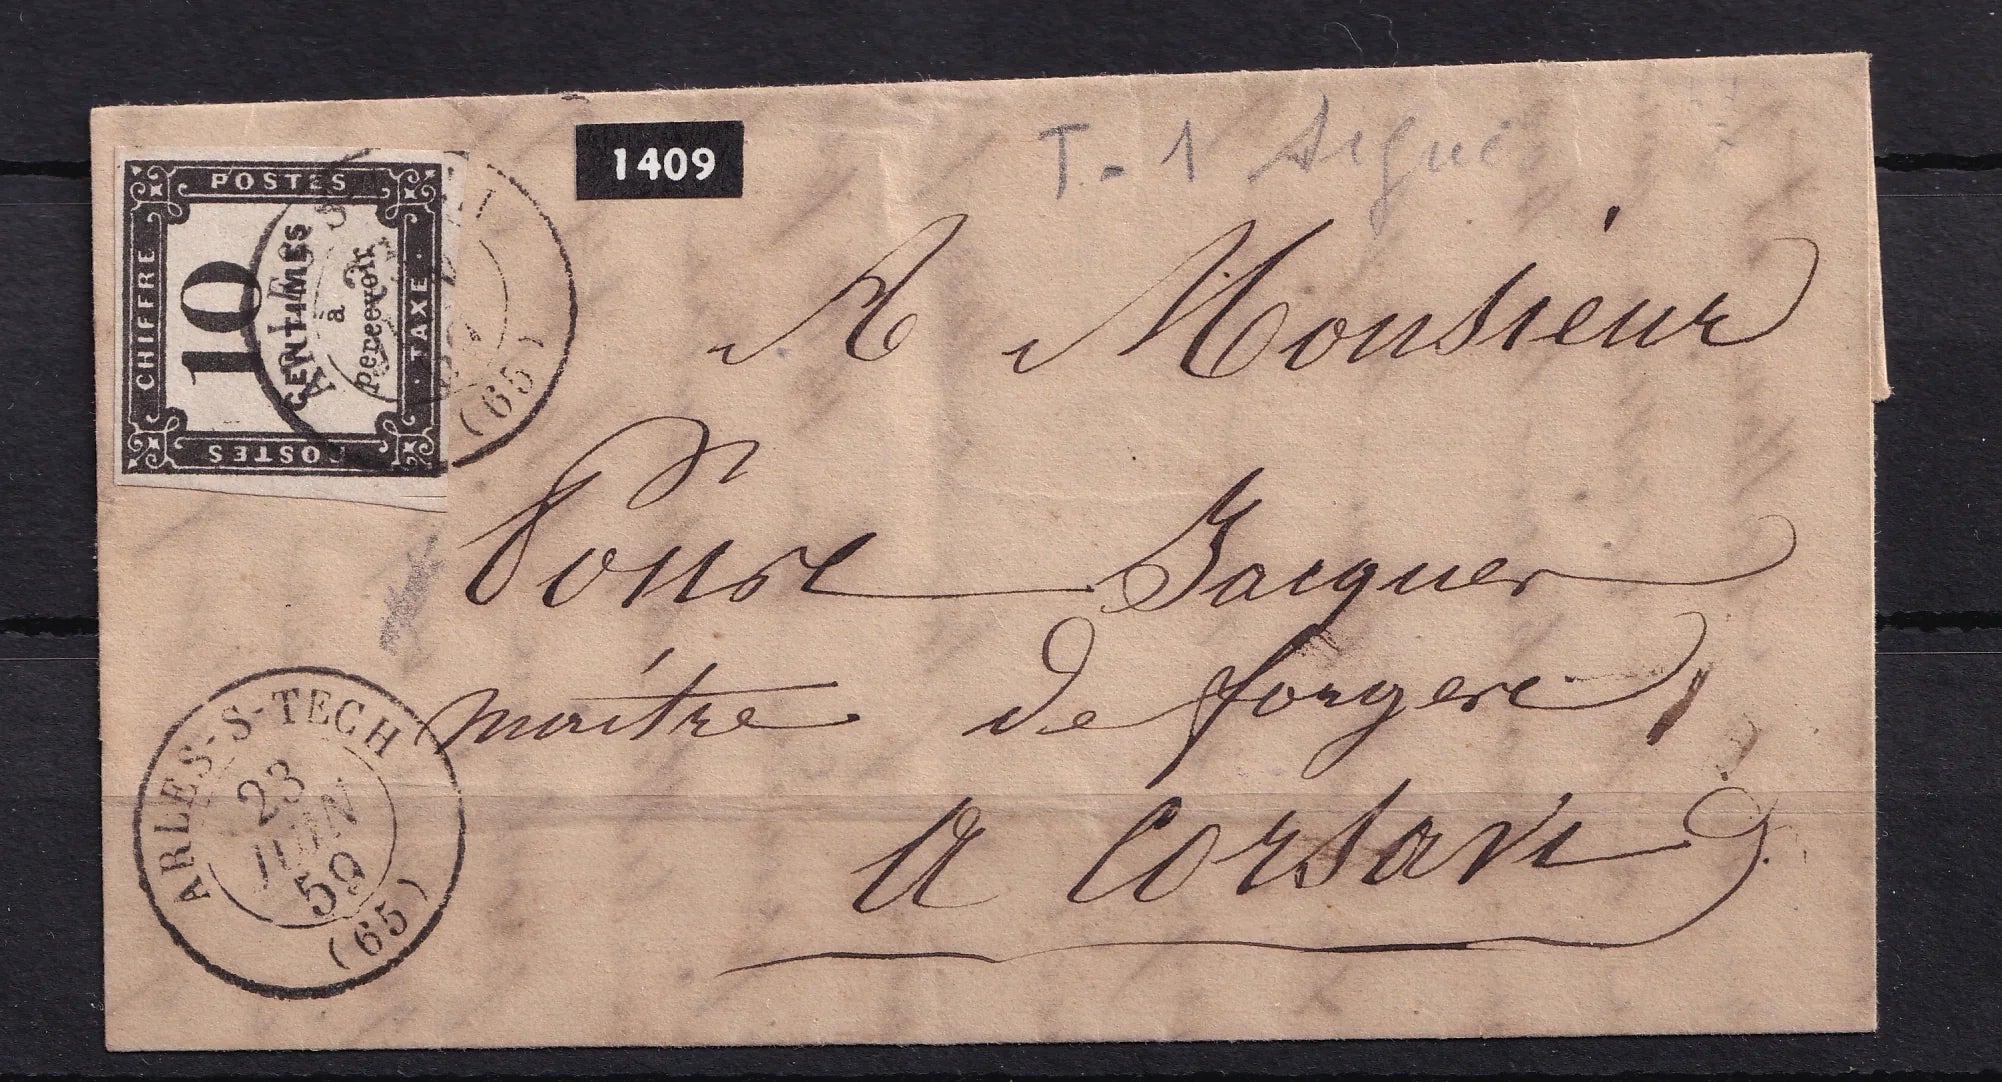 POSTES
CHIFFRE
10
CENTIMES
à
Percevoir
TAXE
POSTES
(65)
1409
T-1 Signé
A Monsieur
Jacques
maître de forgere
a Corsavi
ARLES-S-TECH
23
JUIN
59
(65)